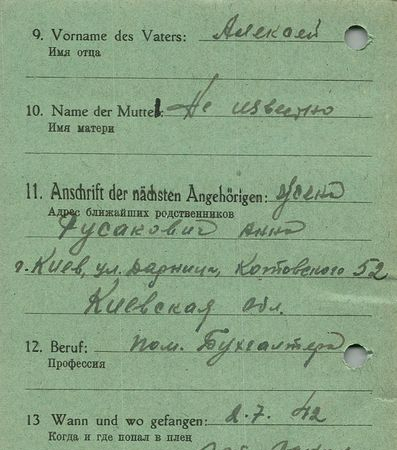 9. Vorname des Vaters: Алексей
Имя отца
10. Name der Mutter: Не известно
Имя матери
11. Anschrift der nächsten Angehörigen: жена
Адрес ближайших родственников
Русакович Анна
г. Киев, ул. Дарница, Котовского 52
Киевская обл.
12. Beruf: пом. Бухгалтера
Профессия
13 Wann und wo gefangen: 2.7.42
Когда и где попал в плен